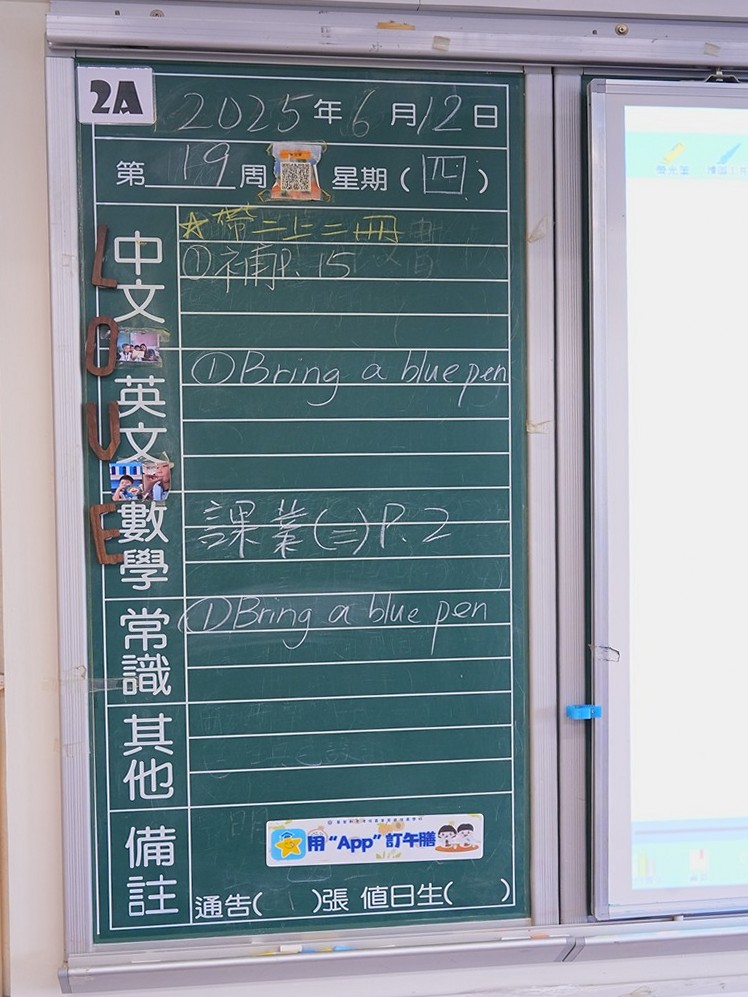 2A
2025年6月12日
第19周 星期(四)
LOVE
中文
☆帶二上二冊
①補P.15
英文
①Bring a blue pen
數學
課業(二)P.2
常識
①Bring a blue pen
其他
備註
用“App”訂午膳
通告( )張 值日生( )
螢光筆